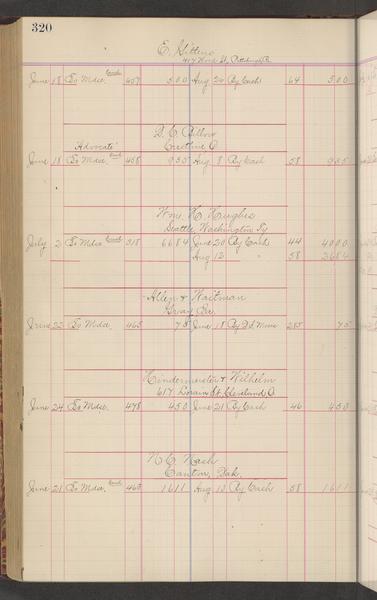 320
E. Gittens
417 Wood St, Pittsburgh Pa
June 18 To Mdse. 407 5 00 Aug 24 By Cash 64 5 00
D. C. Billow
Crestline O
"Advocate"
June 18 To Mdse 408 9 35 Aug 8 By Cash 58 9 35
Wm. H. Hughes
Seattle, Washington Ty
July 2 To Mdse 518 66 84 June 20 By Cash 44 40 00
Aug 12 " 58 26 84
Allen & Waitman
June 22 To Mdse. 465 75 June 18 By 285 75
Hindermeister & Wilhelm
617 Lorain St. Cleveland O.
June 24 To Mdse. 478 4 50 June 21 By Cash 46 4 50
N. C. Nash
Canton, Dak.
June 21 To Mdse. 463 16 11 Aug 10 By Cash 58 16 11